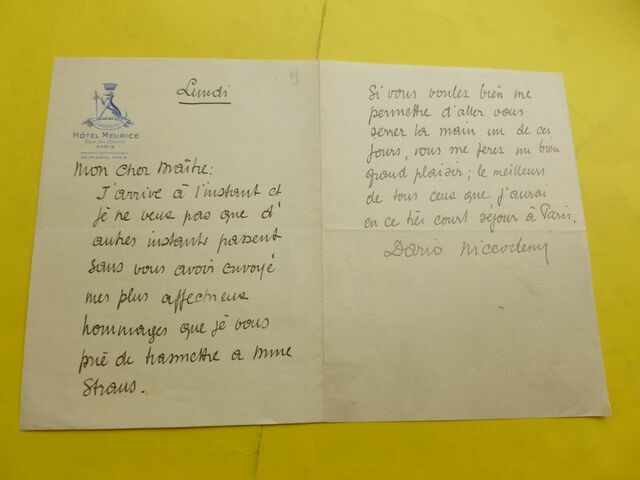 Lundi
HÔTEL MEURICE
Rue de Rivoli
PARIS
Mon cher Maître:
J'arrive à l'instant et
je ne veus pas que d'
autres instants passent
sans vous avoir envoyé
mes plus affectueux
hommages que je vous
prie de transmettre a Mme
Straus.
Si vous voulez bien me
permettre d'aller vous
serrer la main un de ces
jours, vous me ferez un bien
grand plaisir; le meilleurs
de tous ceus que j'aurai
en ce très court séjour à Paris.
Dario Niccodemi